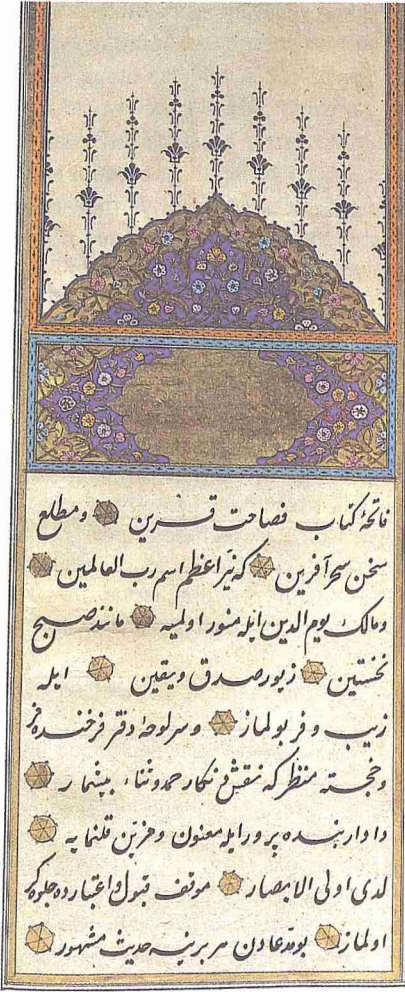 فاتحهٔ کتاب فصاحت قرین و مطلع
سخن سحر آفرین که نیّر اعظم اسم رب العالمین
و مالک یوم الدین ایله منور اولمیه مانند صبح
نخستین زیور صدق و یقین ایله
زیب و فر بولماز و سرلوحهٔ دفتر فرخنده فر
و خجسته منظر که نقش و نکار حمد و ثناء بیشمار
داور بنده پرور ایله معنون و مزین قلنمایه
لدی اولی الابصار موقف قبول و اعتبارده جلوه کر
اولماز بو مدعادن هر برینه حدیث مشهور